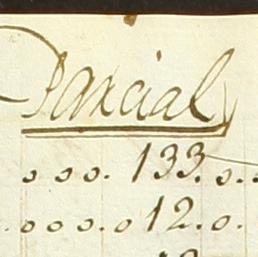 Parcial
o o o. 133. o.
o o o. o 12. o.